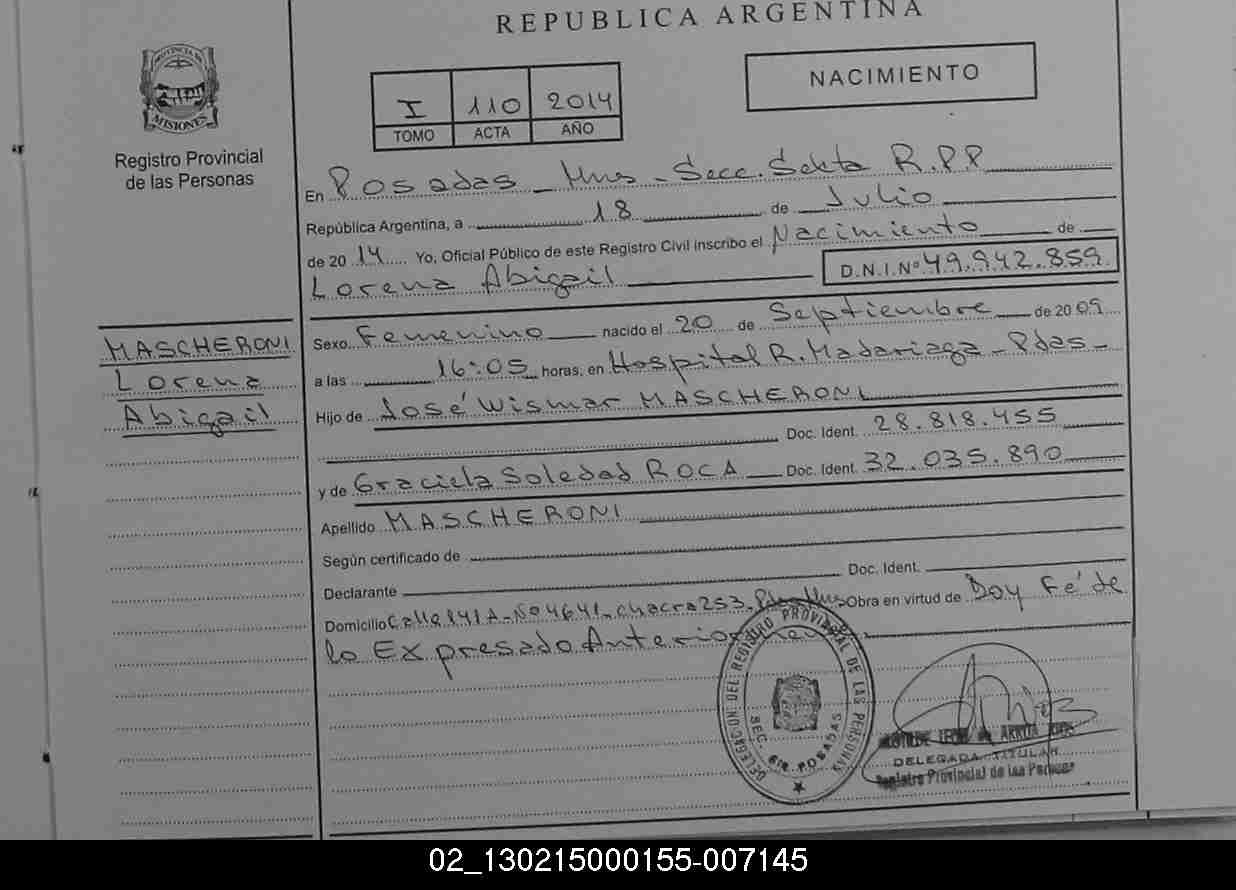 REPUBLICA ARGENTINA
PROVINCIA DE
MISIONES
Registro Provincial
de las Personas
NACIMIENTO
I 110 2014
TOMO ACTA AÑO
En Posadas - Mnes - Secc. Sexta R.P.P
República Argentina, a 18 de Julio
de 2014 Yo, Oficial Público de este Registro Civil inscribo el Nacimiento de
Lorena Abigail D.N.I.Nº 49.942.859
MASCHERONI
Lorena
Abigail
Sexo Femenino nacido el 20 de Septiembre de 2009
a las 16:05 horas, en Hospital R. Madariaga - Pdas -
Hijo de José Wismar MASCHERONI
Doc. Ident. 28.818.455
y de Graciela Soledad ROCA Doc. Ident. 32.035.890
Apellido MASCHERONI
Según certificado de
Declarante Doc. Ident.
Domicilio Calle 141A - Nº 4641 - chacra 253 - Obra en virtud de Doy Fé de
lo Expresado Anteriormente
DELEGACION DEL REGISTRO PROVINCIAL DE LAS PERSONAS
SEC. 6ta. POSADAS
DELEGADA TITULAR
Registro Provincial de las Personas
02_130215000155-007145